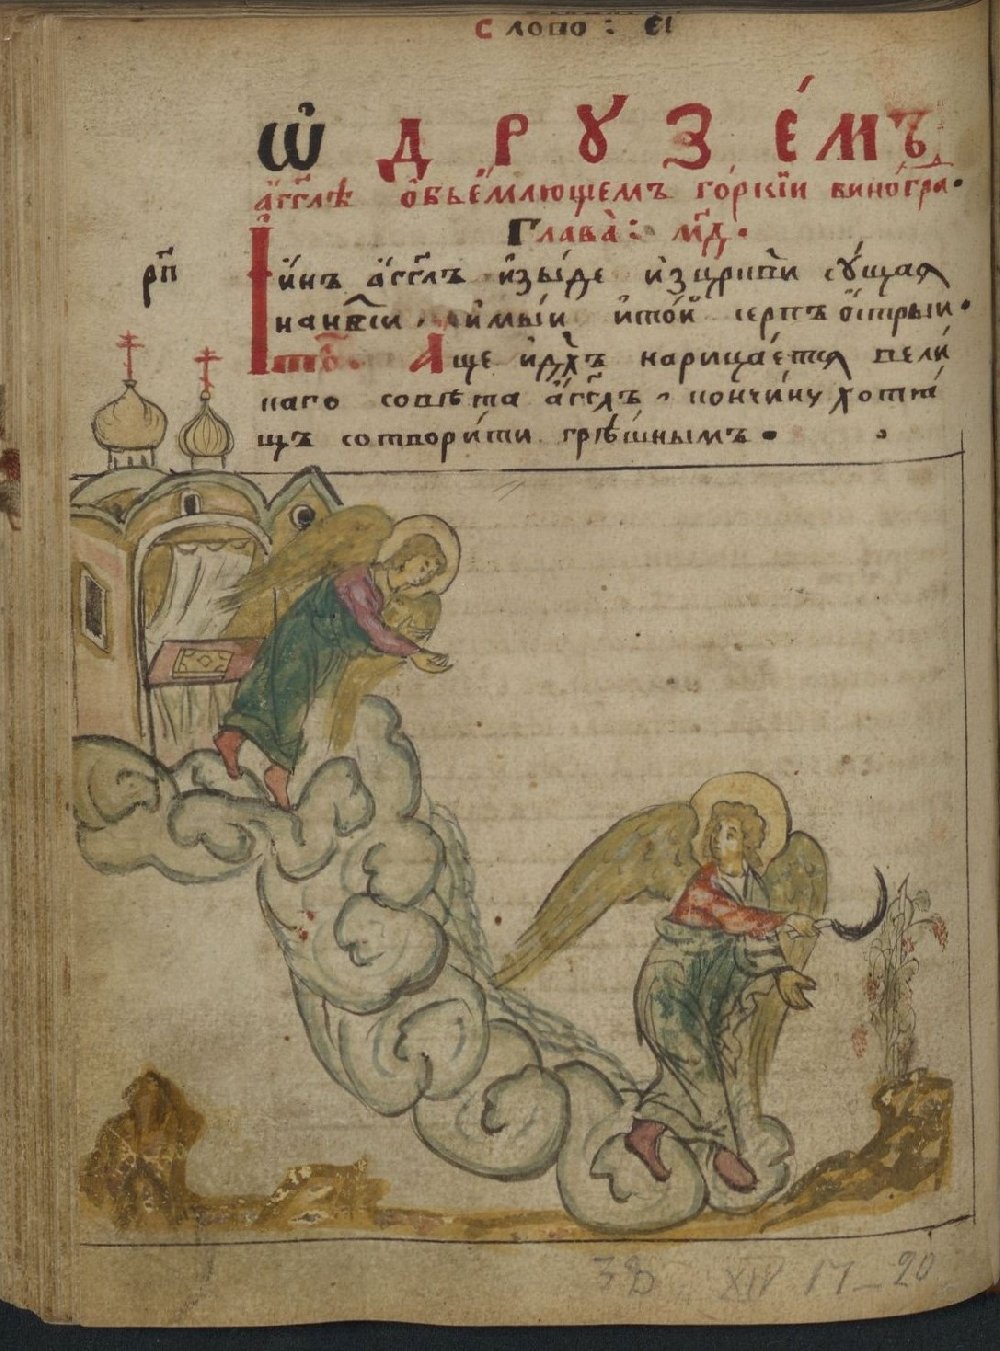 Слово : еі
Ѡ дрꙋзе́мъ
а҆́гг҃лѣ ѻ҆бье́млющемъ го́ркїи виногра
Глава̀ : мд҃ .
рп҃
И҆́инъ а҆́гг҃лъ и҆зы́де и҆з̾цр҃кви сꙋ́щая
на нб҃си , имы́и и то́и серпъ ѻ҆́стрыи
А҆ще идх҃ъ нарица́ется вели
каго совѣта а҆́гг҃лъ , кончи́ну хотѧ́
щъ сотвори́ти грѣ́шнымъ .
38 XIV 17–20